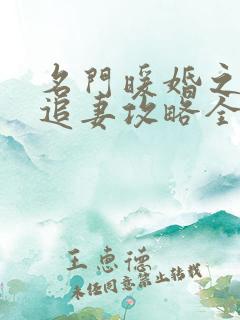 名門暖婚之
追妻攻略全
王惠德
未经同意禁止转载